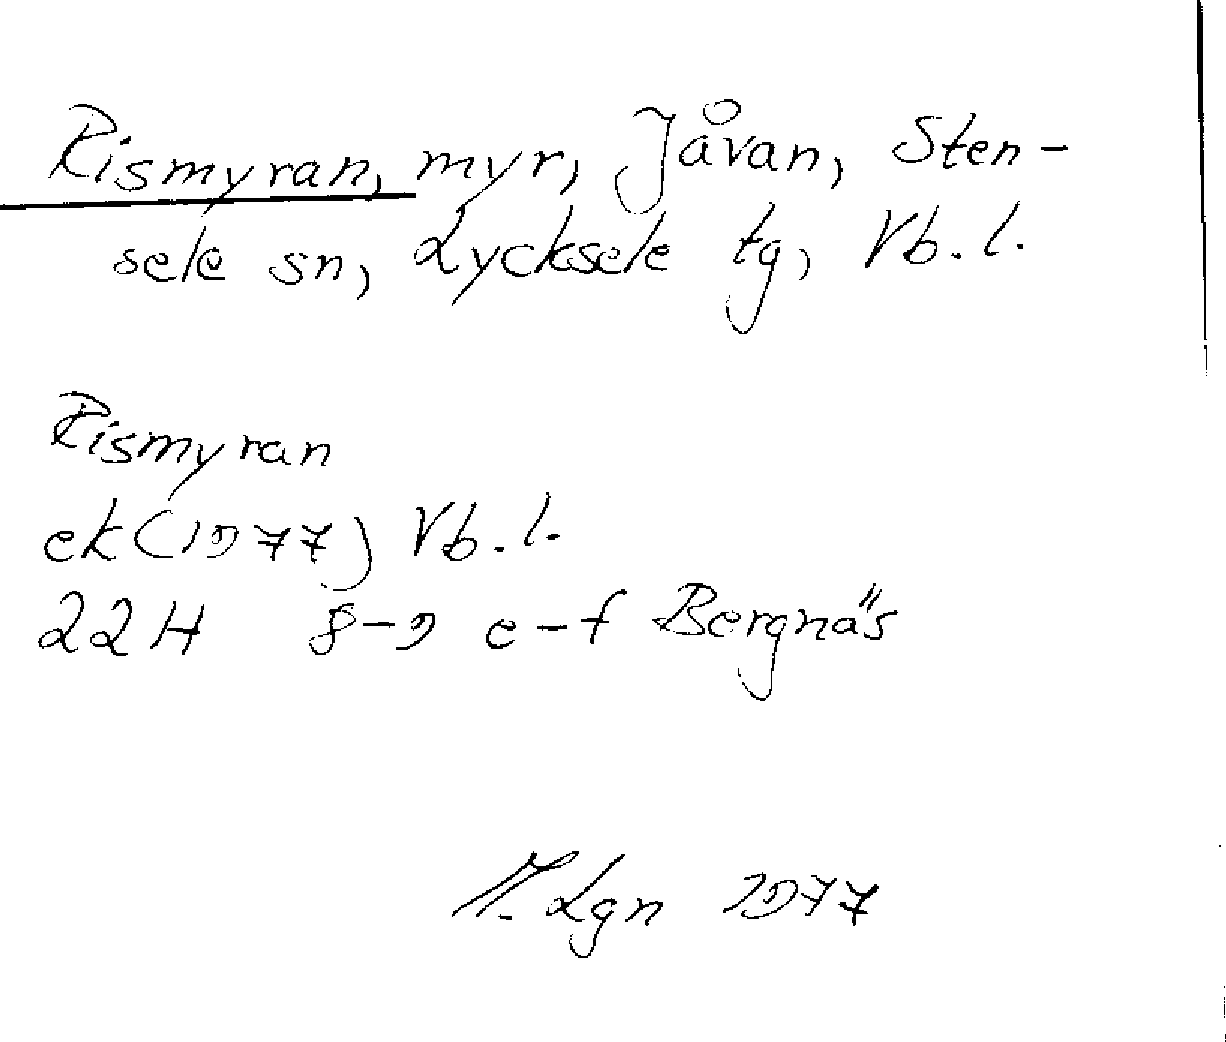 Rismyran, myr, Jåvan, Sten-
sele sn, Lycksele tg, Vb. l.
Rismyran
ek (1977) Vb. l.
22H 8-9 e-f Bergnäs
Lgn 1977